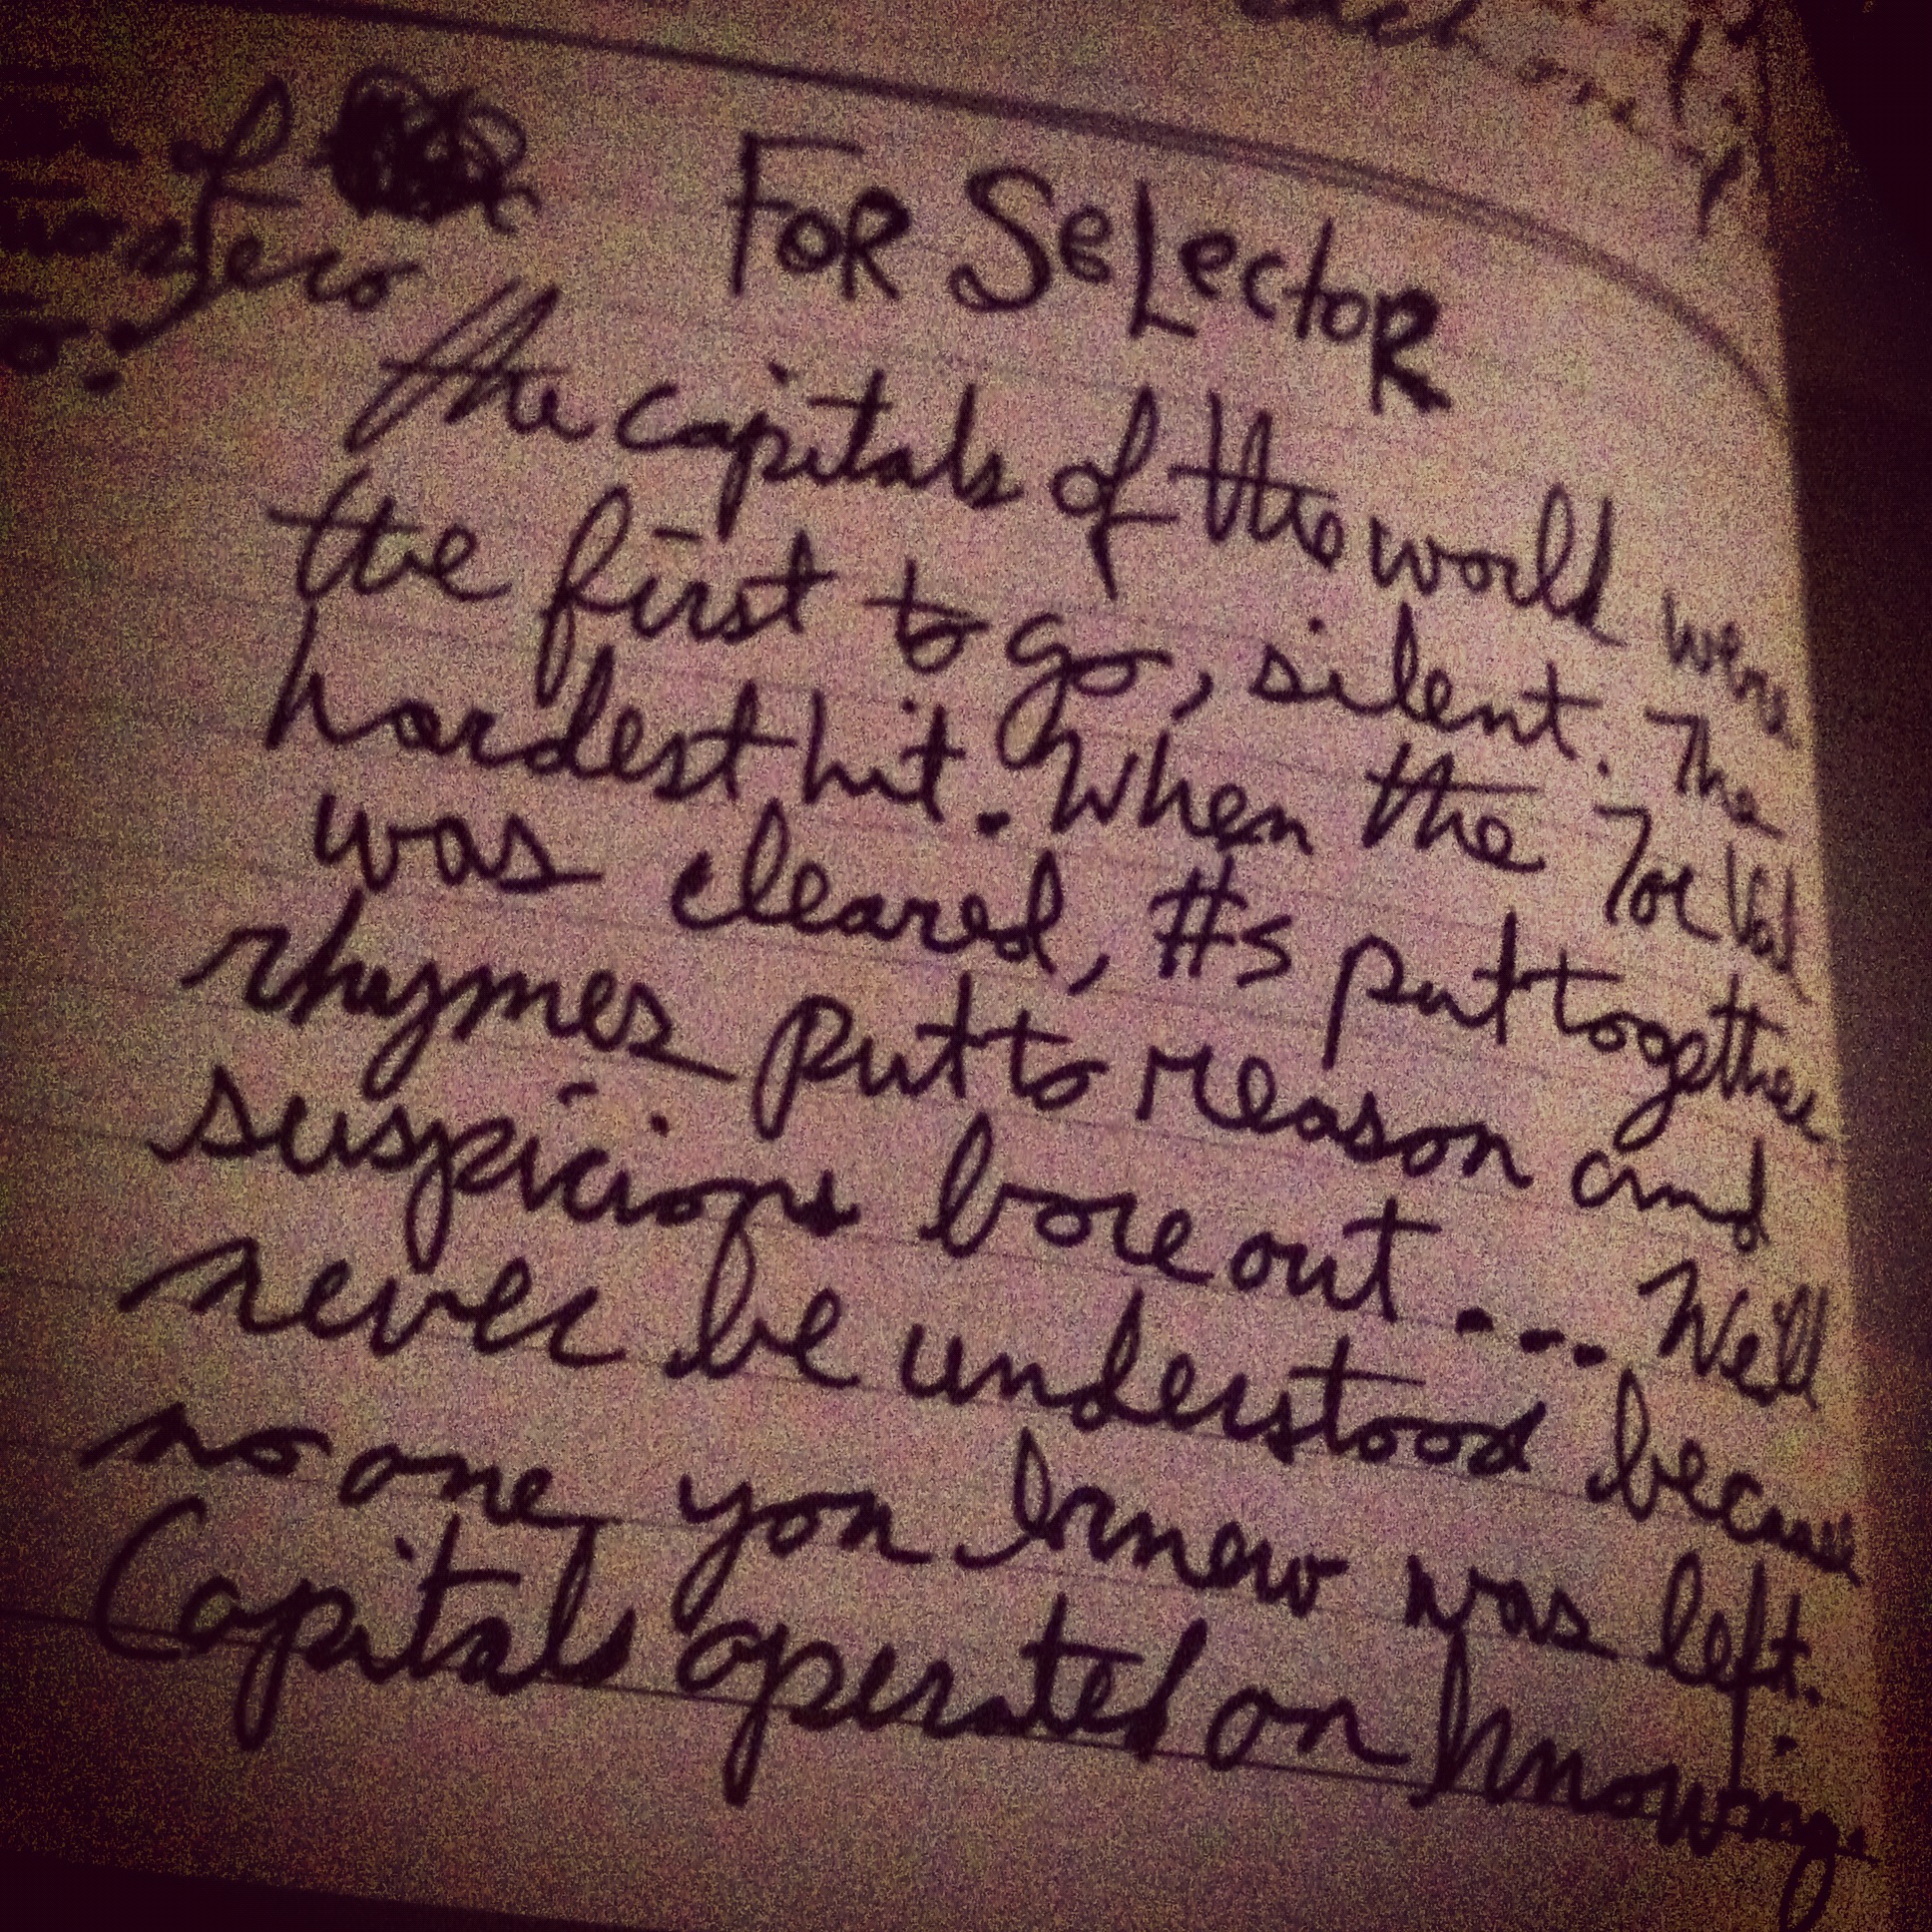 of
zero
FOR SELECTOR
The capitals of the world were
the first to go, silent. The
hardest hit. When the Tor Val
was cleared, #s put together
rhymes put to reason and
suspicions bore out... We'll
never be understood because
no one you knew was left.
Capitals operated on knowing.